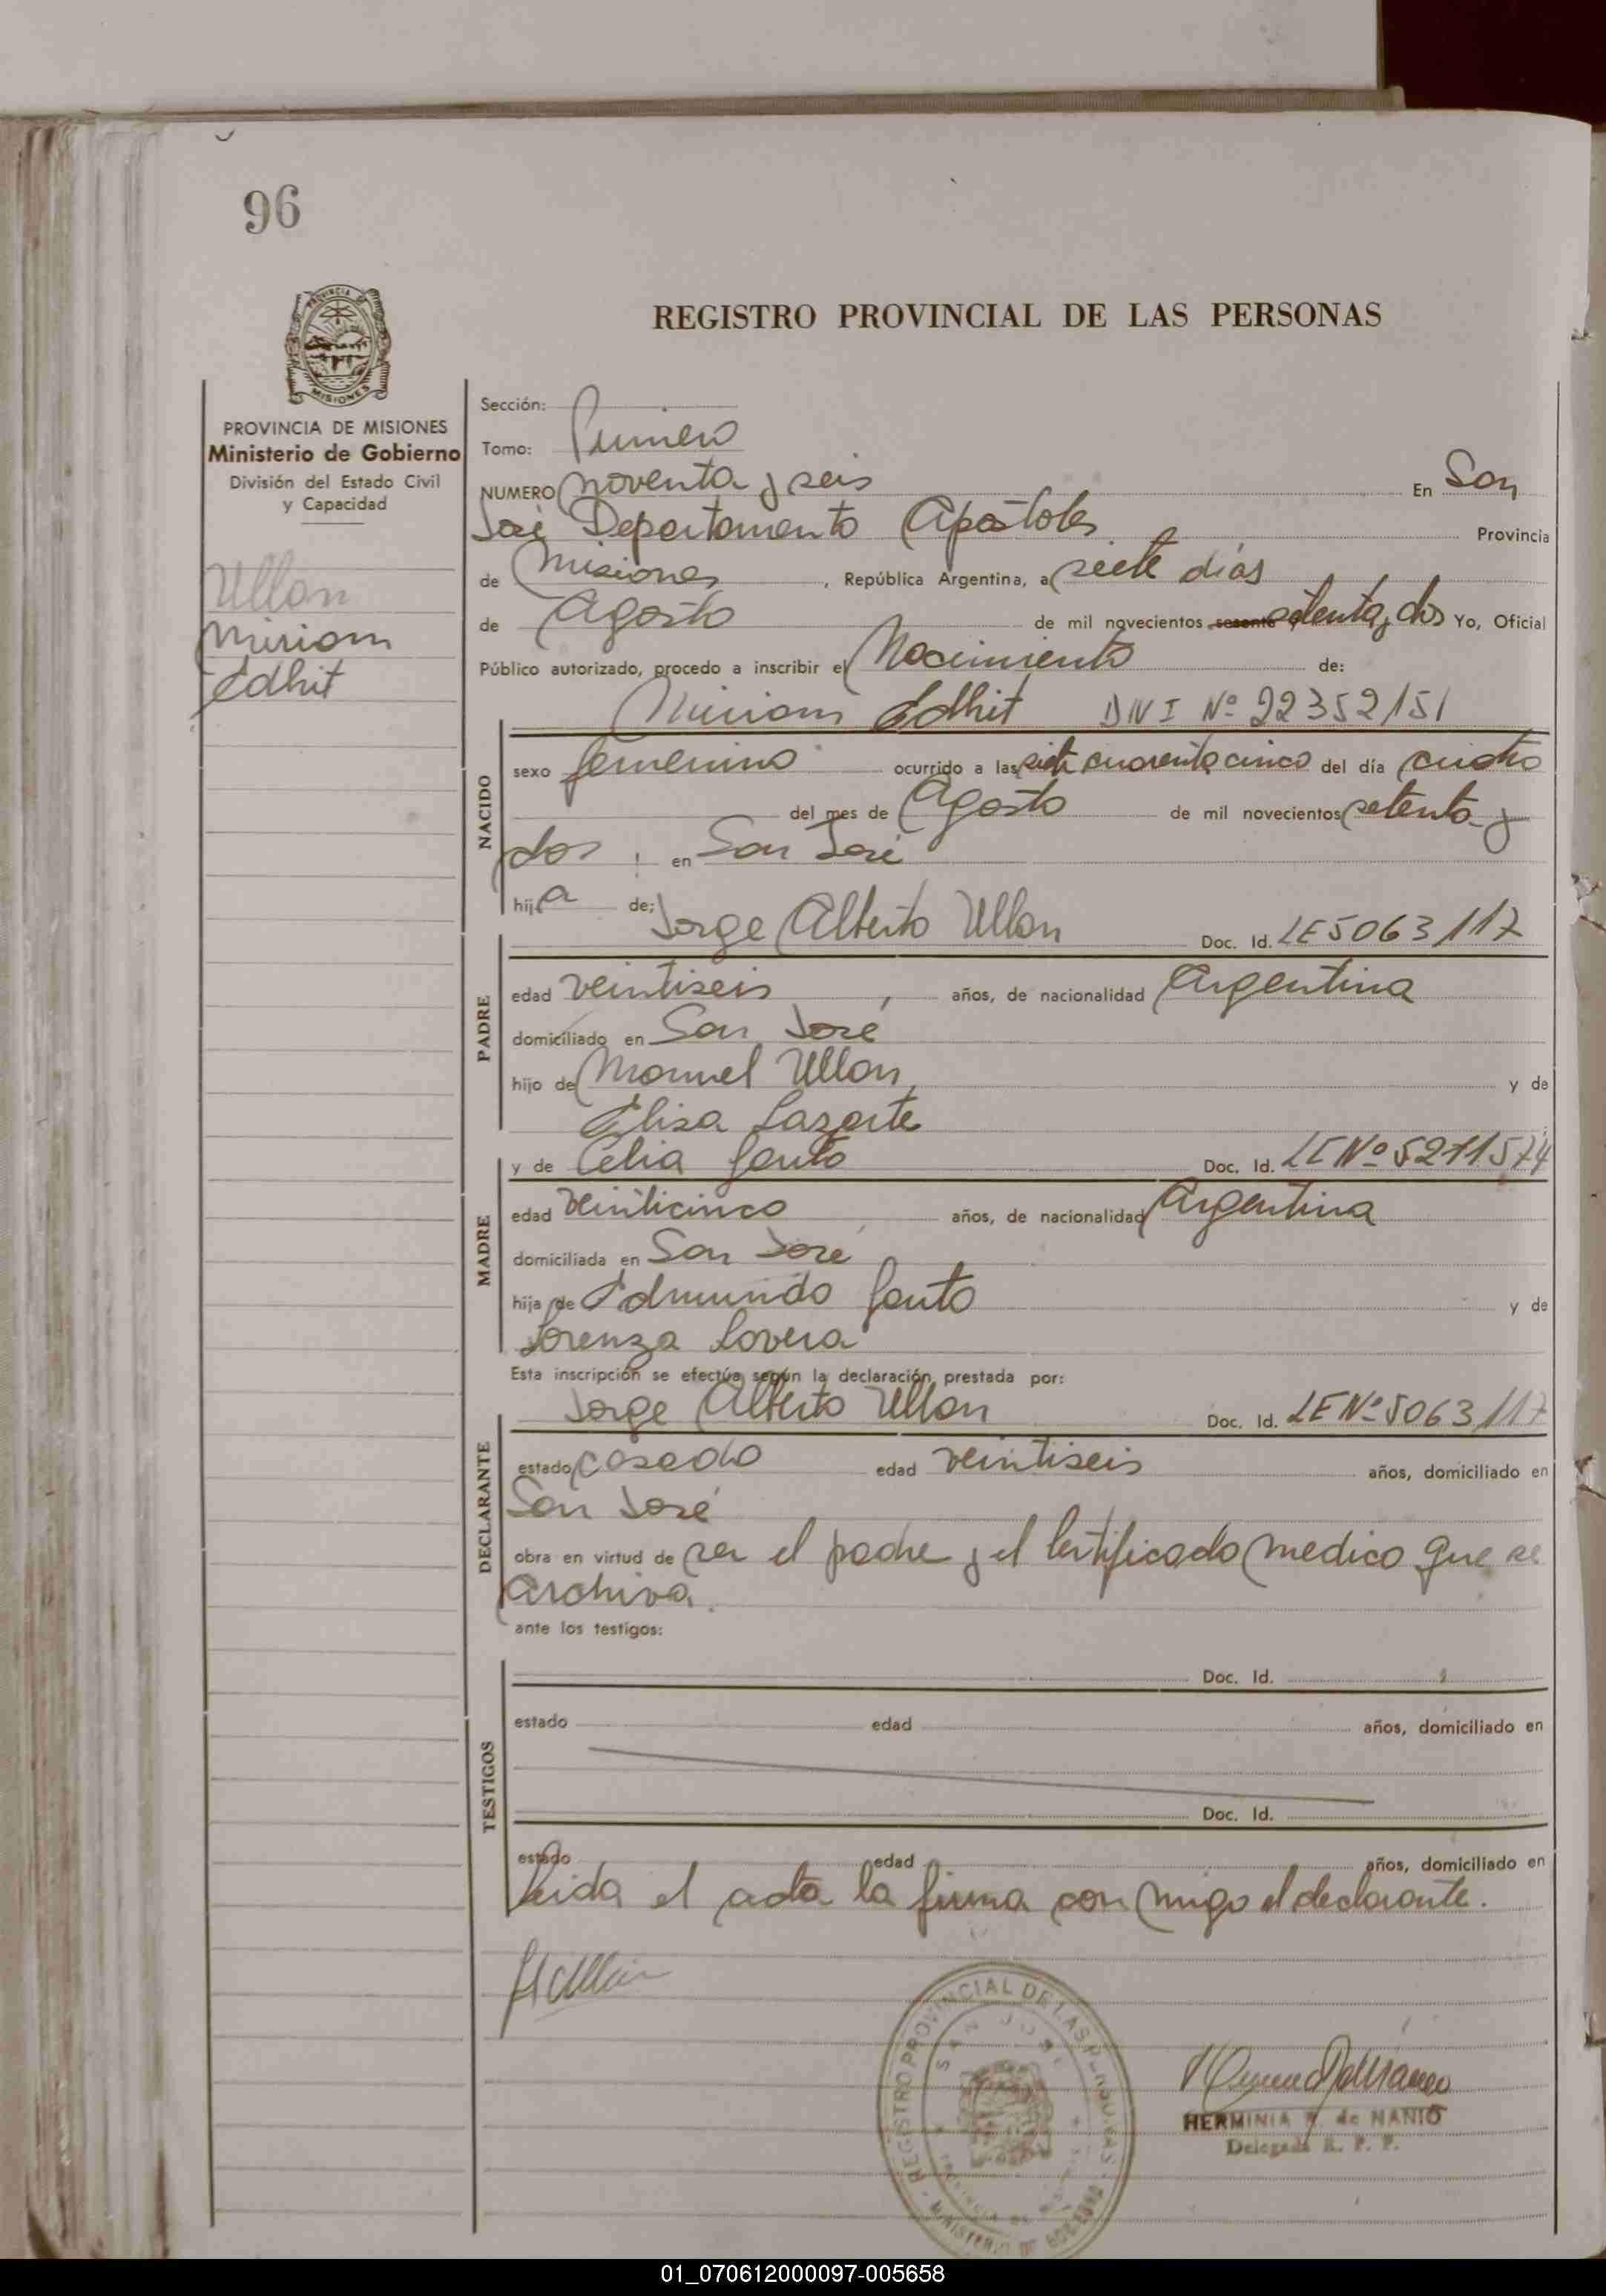 96
REGISTRO PROVINCIAL DE LAS PERSONAS
PROVINCIA DE MISIONES
Ministerio de Gobierno
División del Estado Civil
y Capacidad
Ullon
Miriam
Edhit
Sección:
Tomo: Primero
NUMERO noventa y seis En San
José Departamento Apóstoles Provincia
de Misiones, República Argentina, a siete días
de Agosto de mil novecientos sesenta setenta y dos Yo, Oficial
Público autorizado, procedo a inscribir el Nacimiento de:
Miriam Edhit DNI Nº 22352151
NACIDO
sexo femenino ocurrido a las siete cuarenta cinco del día cuatro
del mes de Agosto de mil novecientos setenta y
dos en San José
hija de: Jorge Alberto Ullon Doc. Id. LE 5063117
PADRE
edad veintiseis, años, de nacionalidad Argentina
domiciliado en San José
hijo de Manuel Ullon, y de
Elisa Lazarte
y de Celia Gauto Doc. Id. LE Nº 5211574
MADRE
edad veinticinco años, de nacionalidad Argentina
domiciliada en San José
hija de Edmundo Gauto y de
Lorenza Lovera
Esta inscripción se efectúa según la declaración prestada por:
Jorge Alberto Ullon Doc. Id. LE Nº 5063117
DECLARANTE
estado casado edad veintiseis años, domiciliado en
San José
obra en virtud de ser el padre y el certificado medico que se
archiva.
ante los testigos:
TESTIGOS
Doc. Id.
estado edad años, domiciliado en
Doc. Id.
estado edad años, domiciliado en
Leida el acta la firma con migo el declarante.
REGISTRO PROVINCIAL DE LAS
SAN JOSE
MINISTERIO DE GOBIERNO
HERMINIA de NANIO
Delegada R. P. P.
01_070612000097-005658